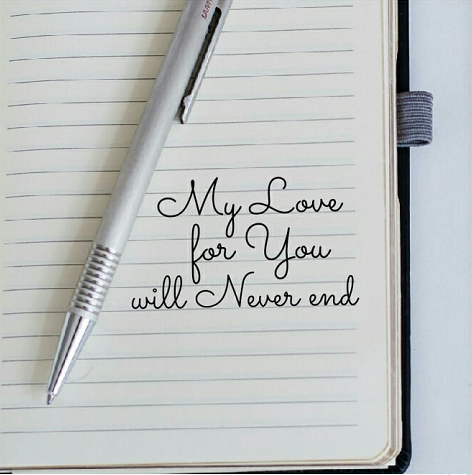 My Love
for You
will Never end